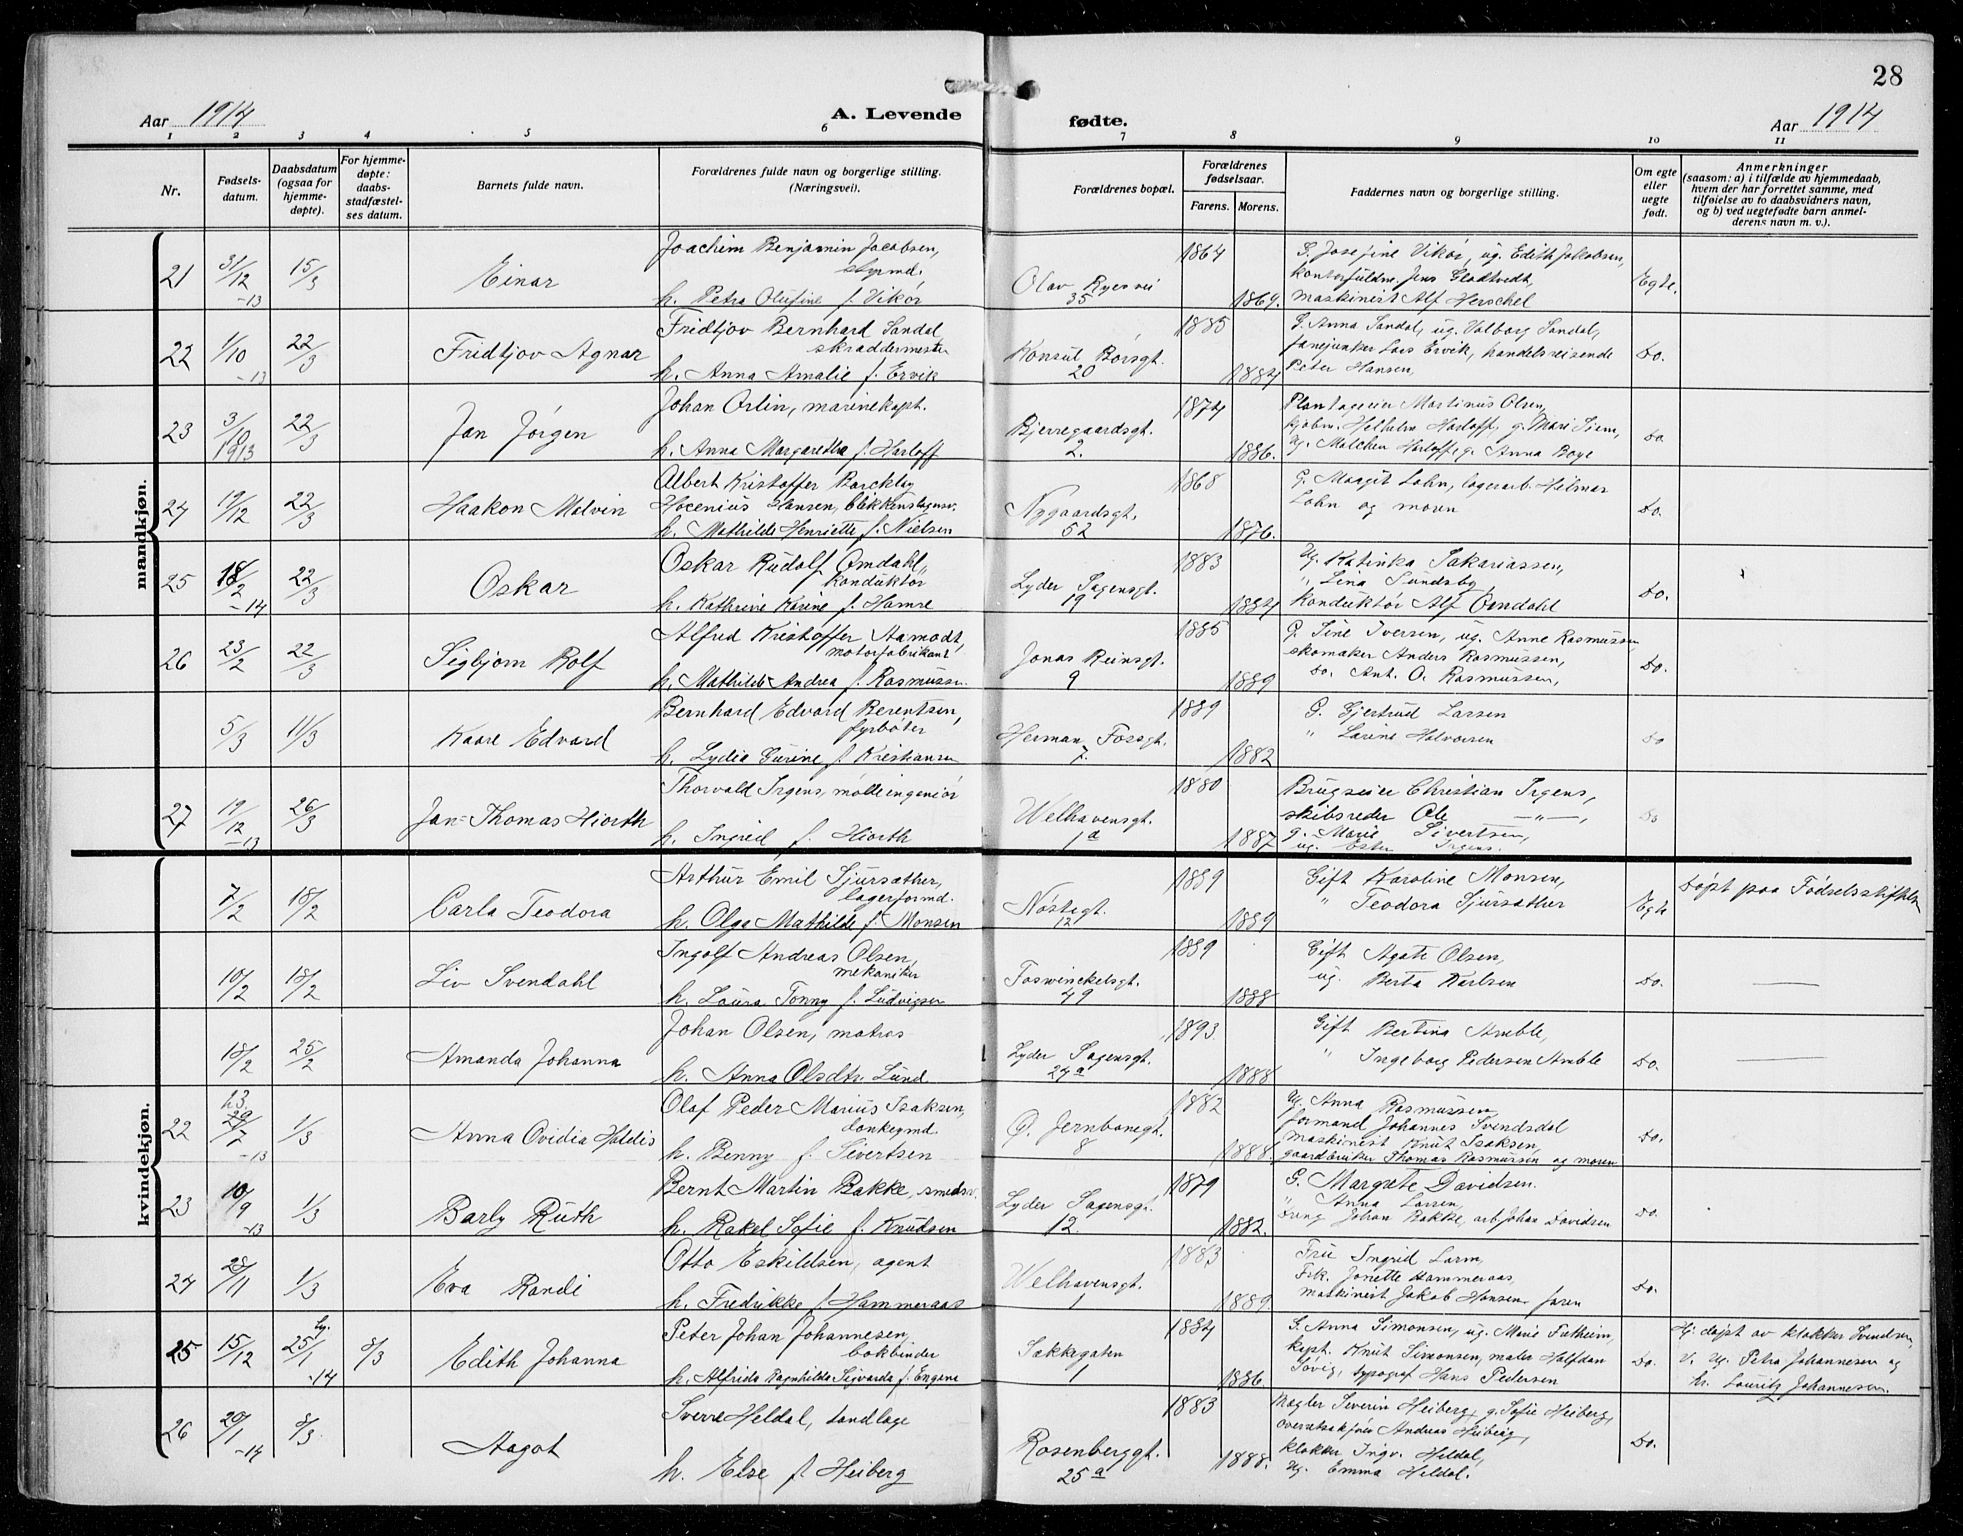 28
Aar 1914
A. Levende fødte.
Aar 1914
1 2 3 4 5 6 7 8 9 10 11
Nr.
Fødsels-
datum.
Daabsdatum
(ogsaa for
hjemme-
døpte).
For hjemme-
døpte:
daabs-
stadfæstel-
ses datum.
Barnets fulde navn.
Forældrenes fulde navn og borgerlige stilling.
(Næringsvei).
Forældrenes bopæl.
Forældrenes
fødselsaar.
Farens. Morens.
Faddernes navn og borgerlige stilling.
Om egte
eller
uegte
født.
Anmerkninger
(saasom: a) i tilfælde av hjemmedaab,
hvem der har forrettet samme, med
tilføielse av to daabsvidners navn,
og b) ved uegtefødte barn anmel-
derens navn m. v.).
mandkjøn.
21 31/12 -13 15/3 Einar
Joachim Benjamin Jacobsen,
styrmd.
h. Petra Olufine f. Vikør
Olav Ryesvei
35
1864 1869.
G. Josefine Vikør, ug. Edith Jakobsen,
kontorfuldm. Jens Gladtvedt,
maskinist Alf Herschel
Egte.
22 1/10 -13 22/3 Fridtjov Agnar
Fridtjov Bernhard Sandal
skræddermester
h. Anna Amalie f. Ervik
Konsul Børsgt.
20
1885 1884
G. Anna Sandal, ug. Valborg Sandal,
fanejunker Lars Ervik, handelsreisende
Peter Hansen,
Do.
23 3/10 1913 22/3 Jan Jørgen
Johan Orlin, marinekapt.
h. Anna Margaretha f. Harloff
Bjerregaardsgt.
2.
1874 1886.
Plantageeier Martinus Olsen,
kjøbm. Harloff, g. Mari
Ug. Malchen Harloff, g. Anna Boye
Do
24 19/12 22/3 Haakon Melvin
Albert Kristoffer Barckley
Hocenius Hansen, blikkenslagersv.
h. Mathilde Henriette f. Nielsen
Nygaardsgt.
52
1868 1876.
G. Maggit Lohn, lagerarb. Hilmar
Lohn og moren
Do.
25 18/2 -14 22/3 Oskar
Oskar Rudolf Omdahl,
konduktør
h. Kathrine Karine f. Hamre
Lyder Sagensgt.
19
1883 1884
Ug. Katinka Sakariassen,
" Lina Sundsby
konduktør Alf Omdahl
Do.
26 23/2 22/3 Sigbjørn Rolf
Alfred Kristoffer Aamodt,
motorfabrikant
h. Mathilde Andrea f. Rasmussen.
Jonas Reinsgt.
9
1885 1889
G. Sine Iversen, ug. Anne Rasmussen
skomaker Anders Rasmussen,
do. Ant. O. Rasmussen,
Do.
5/3 11/3 Kaare Edvard
Bernhard Edvard Berentsen,
fyrbøter
h. Lydia Gurine f. Kristiansen
Herman Fossgt.
7.
1889 1882
G. Gjertrud Larsen
" Larine Halvorsen
Do
27 19/12 -13 26/3 Jan Thomas Hiorth
Thorvald Irgens, mølleingeniør
h. Ingrid f. Hiorth
Welhavensgt.
1a
1880 1887
Brugseier Christian Irgens,
skibsreder Ole —"—,
g. Marie Sivertsen,
ug. Ester Irgens.
Do
kvindekjøn.
7/2 18/2 Carla Teodora
Arthur Emil Sjursæther,
lagerformd.
h. Olga Mathilde f. Monsen
Nøstegt.
12
1889 1889
Gift Karoline Monsen,
" Teodora Sjursæther
Egte
Døpt paa Fødselsstiftelsen
10/2 18/2 Liv Svendahl
Ingolf Andreas Olsen,
mekaniker
h. Laura Tonny f. Ludvigsen
Foswinckelsgt.
49
1889 1888
Gift Agate Olsen,
ug. Berta Karlsen
Do.
18/2 25/2 Amanda Johanna
Johan Olsen, matros
h. Anna Olsdtr. Lund
Lyder Sagensgt.
24a
1893 1888
Gift Bertina Amble,
" Ingeborg Pedersen Amble
Do.
22 29/7 -13 1/3 Anna Ovidia Haldis
Olaf Peder Marius Isaksen,
donkeymd.
h. Benny f. Sivertsen
Ø. Jernbanegt.
8
1882 1888.
Ug. Anna Rasmussen,
formand Johannes Svendsdal
maskinist Knut Isaksen,
gaardbruker Thomas Rasmussen og moren
Do.
23 10/9 -13 1/3 Barly Ruth
Bernt Martin Bakke, smedsv.
h. Rakel Sofie f. Knudsen
Lyder Sagensgt.
12.
1879 1882.
G. Margrete Davidsen.
" Anna Larsen,
Johan Bakke, arb. Johan Davidsen
Do.
24 28/11 1/3 Eva Randi
Otto Eskildsen, agent
h. Fredrikke f. Hammeraas
Welhavensgt.
1
1883 1889
Fru Ingrid Larm
Frk. Jonette Hammeraas,
maskinist Jakob Hansen
Do.
25 15/12 25/1 -14 8/3 Edith Johanna
Peter Johan Johannesen,
bokbinder
h. Alfrida Ragnhilda Sigvarda f. Engene
Sækkegaten
1
1884 1886.
G. Anna Simonsen, ug. Marie Fatheim,
kapt. Knut Simonsen, maler Halfdan
Søvig, typograf Hans Pedersen
Do.
Hj. døpt av klokker Svendsen,
V. Ug. Petra Johannesen og
hr. Lauritz Johannesen.
26 20/1 -14 8/3 Aagot
Sverre Heldal, tandlæge
h. Else f. Heiberg
Rosenberggt.
25a
1883 1888.
Mægler Severin Heiberg, g. Sofie Heiberg,
overretssakfører Andreas Heiberg,
klokker Ingv. Heldal,
Ug. Emma Heldal.
Do.